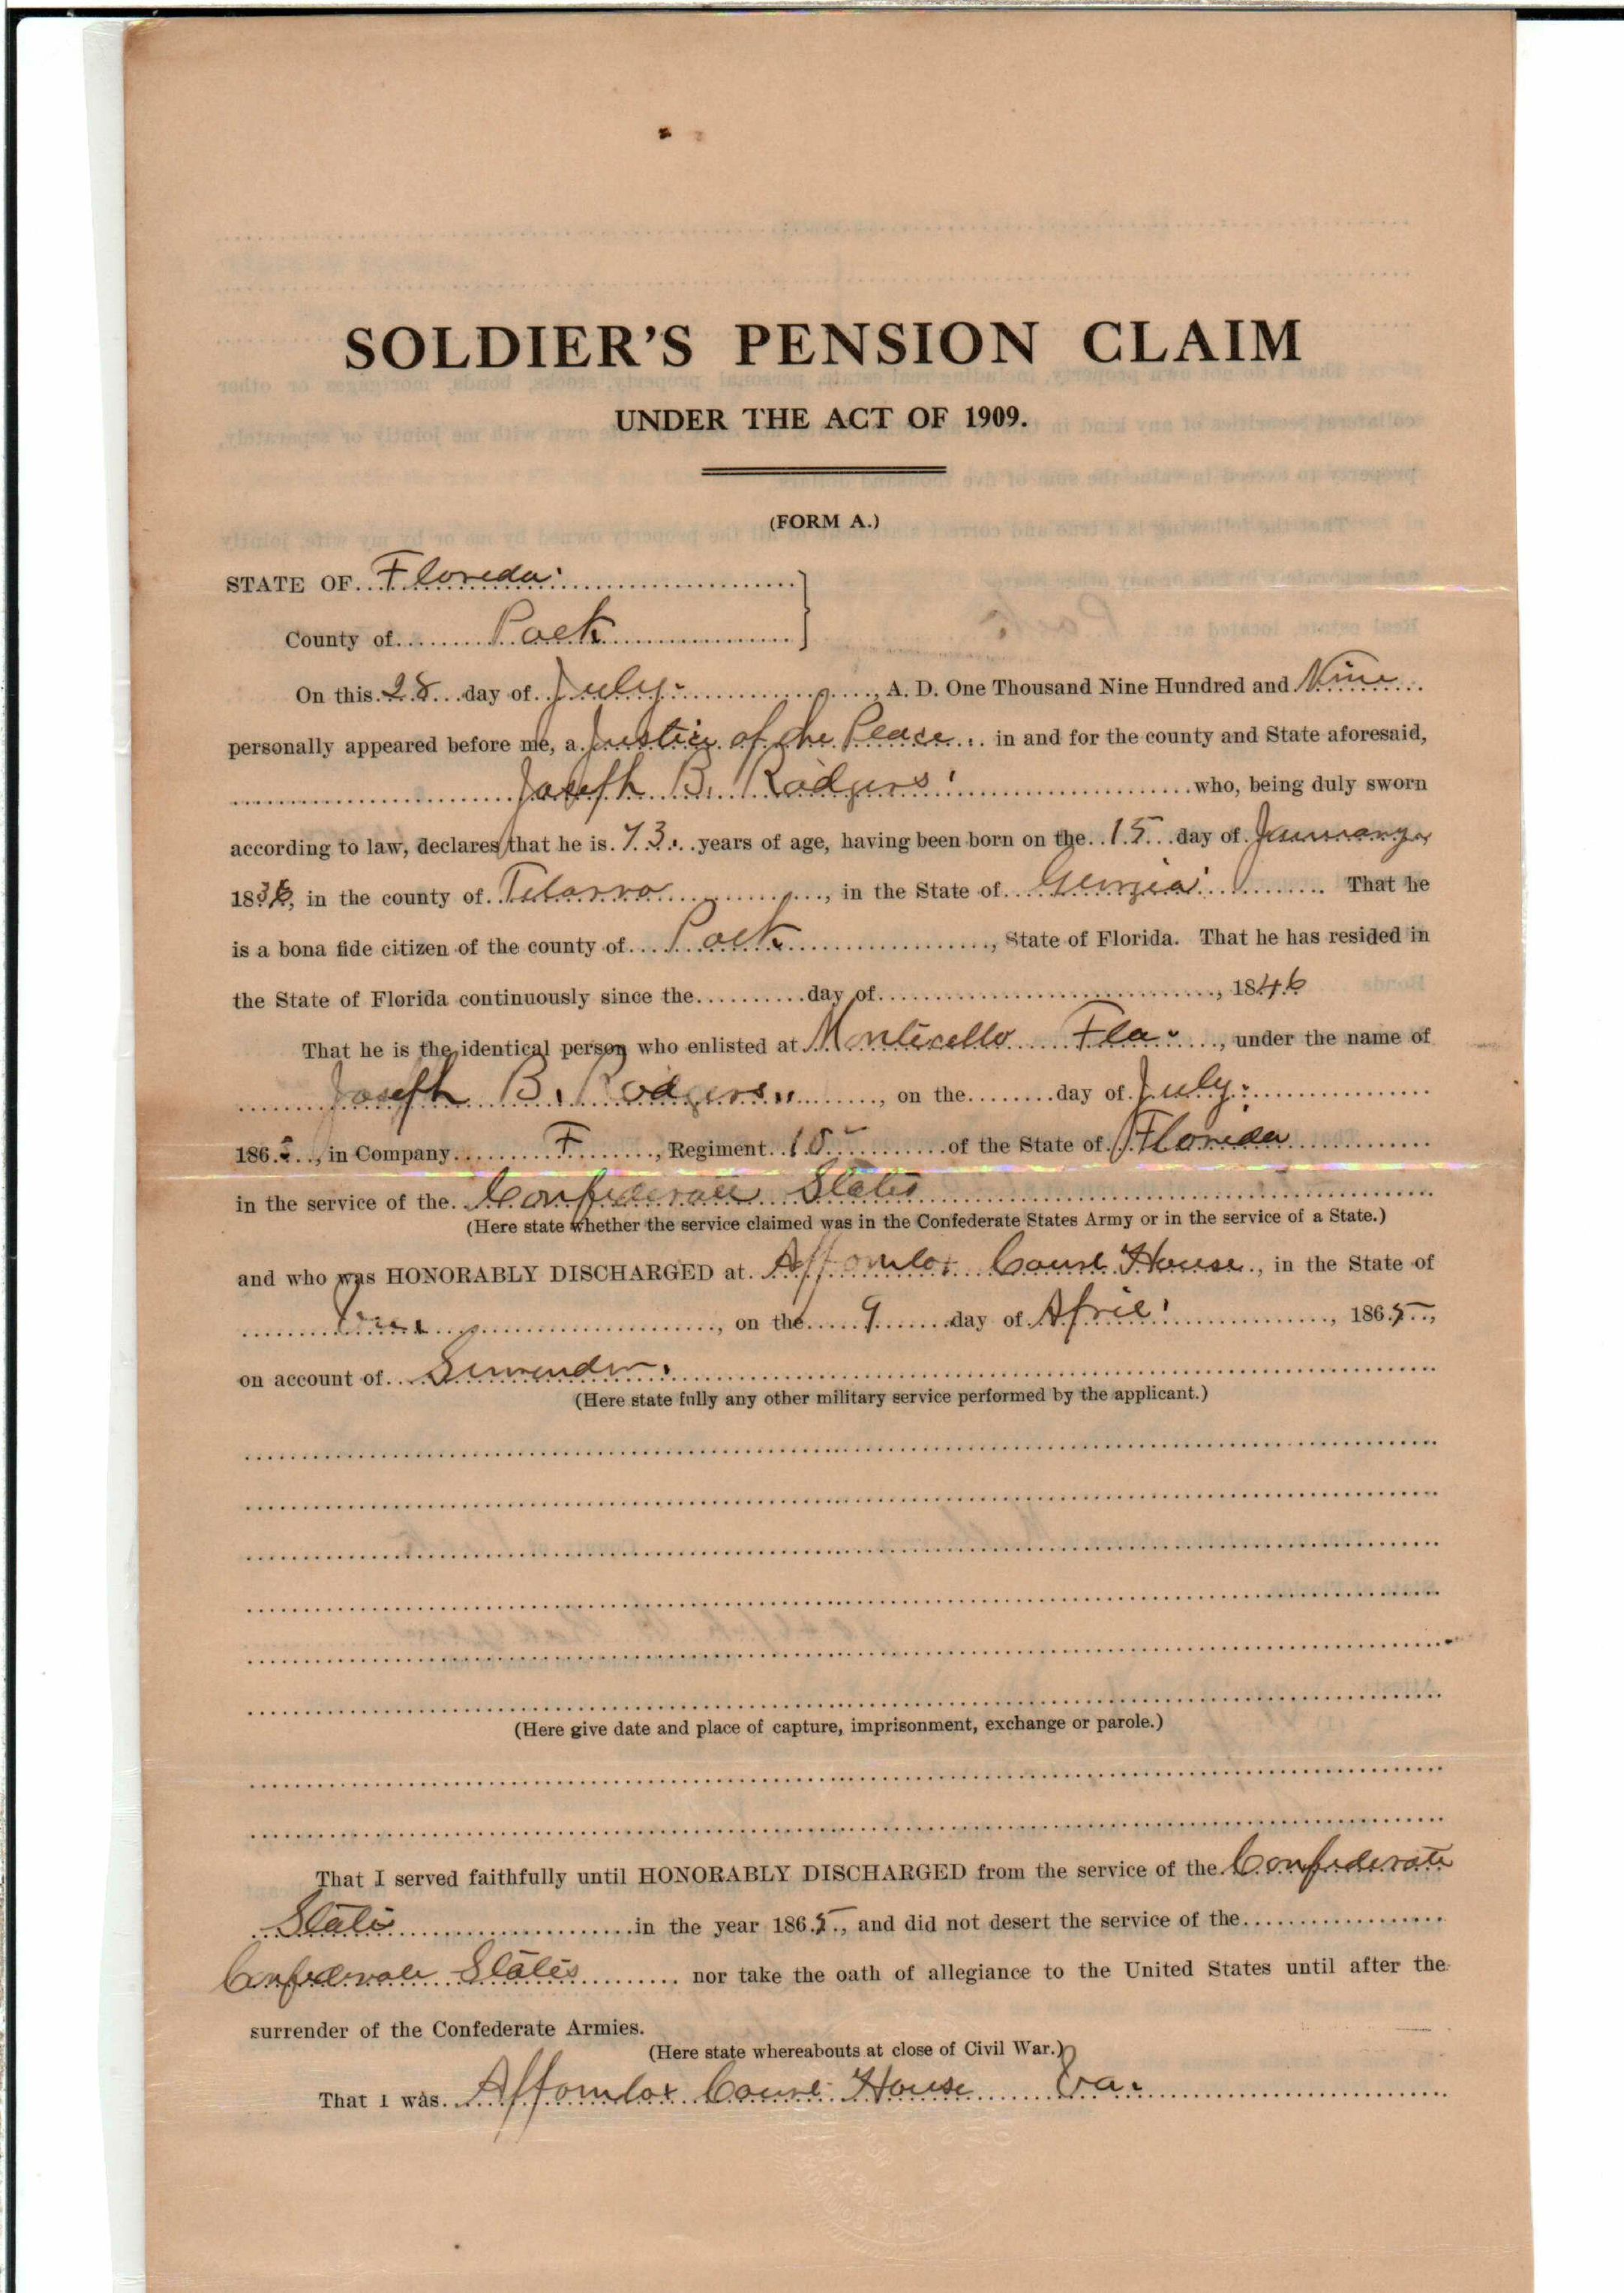 SOLDIER'S PENSION CLAIM
UNDER THE ACT OF 1909.
(FORM A.)
STATE OF Florida
County of Polk
On this 28 day of July, A. D. One Thousand Nine Hundred and Nine
personally appeared before me, a Justice of the Peace in and for the county and State aforesaid,
Joseph B. Rodgers who, being duly sworn
according to law, declares that he is 73 years of age, having been born on the 15 day of January
1836, in the county of, in the State of Georgia That he
is a bona fide citizen of the county of Polk, State of Florida. That he has resided in
the State of Florida continuously since the day of, 1846
That he is the identical person who enlisted at Monticello Fla., under the name of
Joseph B. Rodgers, on the day of July
186, in Company F, Regiment 10 of the State of Florida
in the service of the Confederate States
(Here state whether the service claimed was in the Confederate States Army or in the service of a State.)
and who was HONORABLY DISCHARGED at Appomtox Court House, in the State of
, on the 9 day of April, 1865,
on account of Surrender.
(Here state fully any other military service performed by the applicant.)
(Here give date and place of capture, imprisonment, exchange or parole.)
That I served faithfully until HONORABLY DISCHARGED from the service of the Confederate
States in the year 1865, and did not desert the service of the
Confederate States nor take the oath of allegiance to the United States until after the
surrender of the Confederate Armies.
(Here state whereabouts at close of Civil War.)
That I was Appomtox Court House Va.